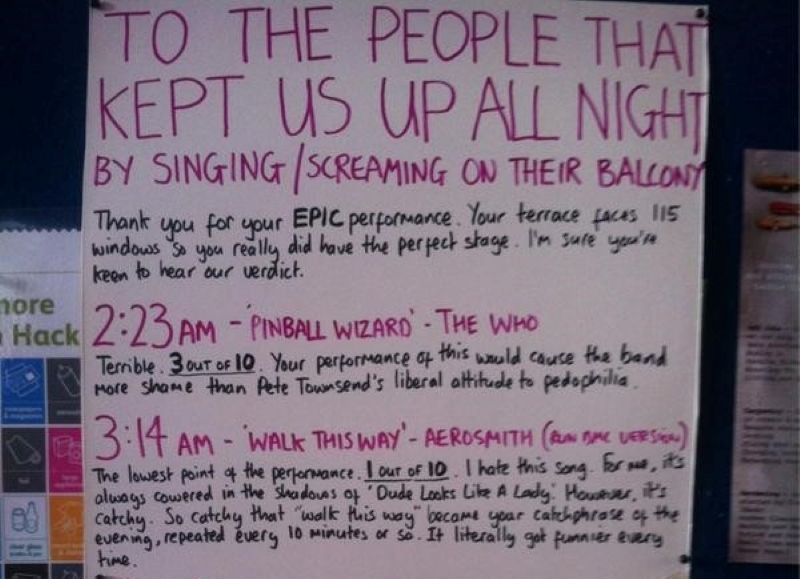 TO THE PEOPLE THAT
KEPT US UP ALL NIGHT
BY SINGING/SCREAMING ON THEIR BALCONY
Thank you for your EPIC performance. Your terrace faces 115
windows so you really did have the perfect stage. I'm sure you're
keen to hear our verdict.
2:23AM - 'PINBALL WIZARD' - THE WHO
Terrible. 3 OUT OF 10. Your performance of this would cause the band
more shame than Pete Townsend's liberal attitude to pedophilia.
3:14 AM - 'WALK THIS WAY' - AEROSMITH (RUN DMC VERSION)
The lowest point of the performance. 1 OUT OF 10. I hate this song. For me, it's
always cowered in the shadows of 'Dude Looks Like A Lady'. However, it's
catchy. So catchy that "walk this way" became your catchphrase of the
evening, repeated every 10 minutes or so. It literally got funnier every
time.
more
Hack